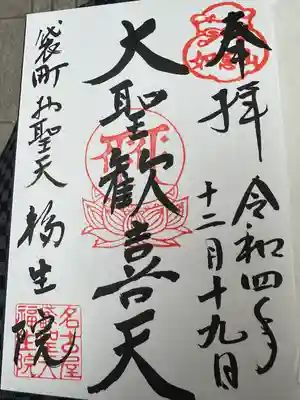 奉拝
令和四年
十二月十九日
大聖歓喜天
袋町お聖天
福生院
如意山
名古屋
袋町聖天
福生院